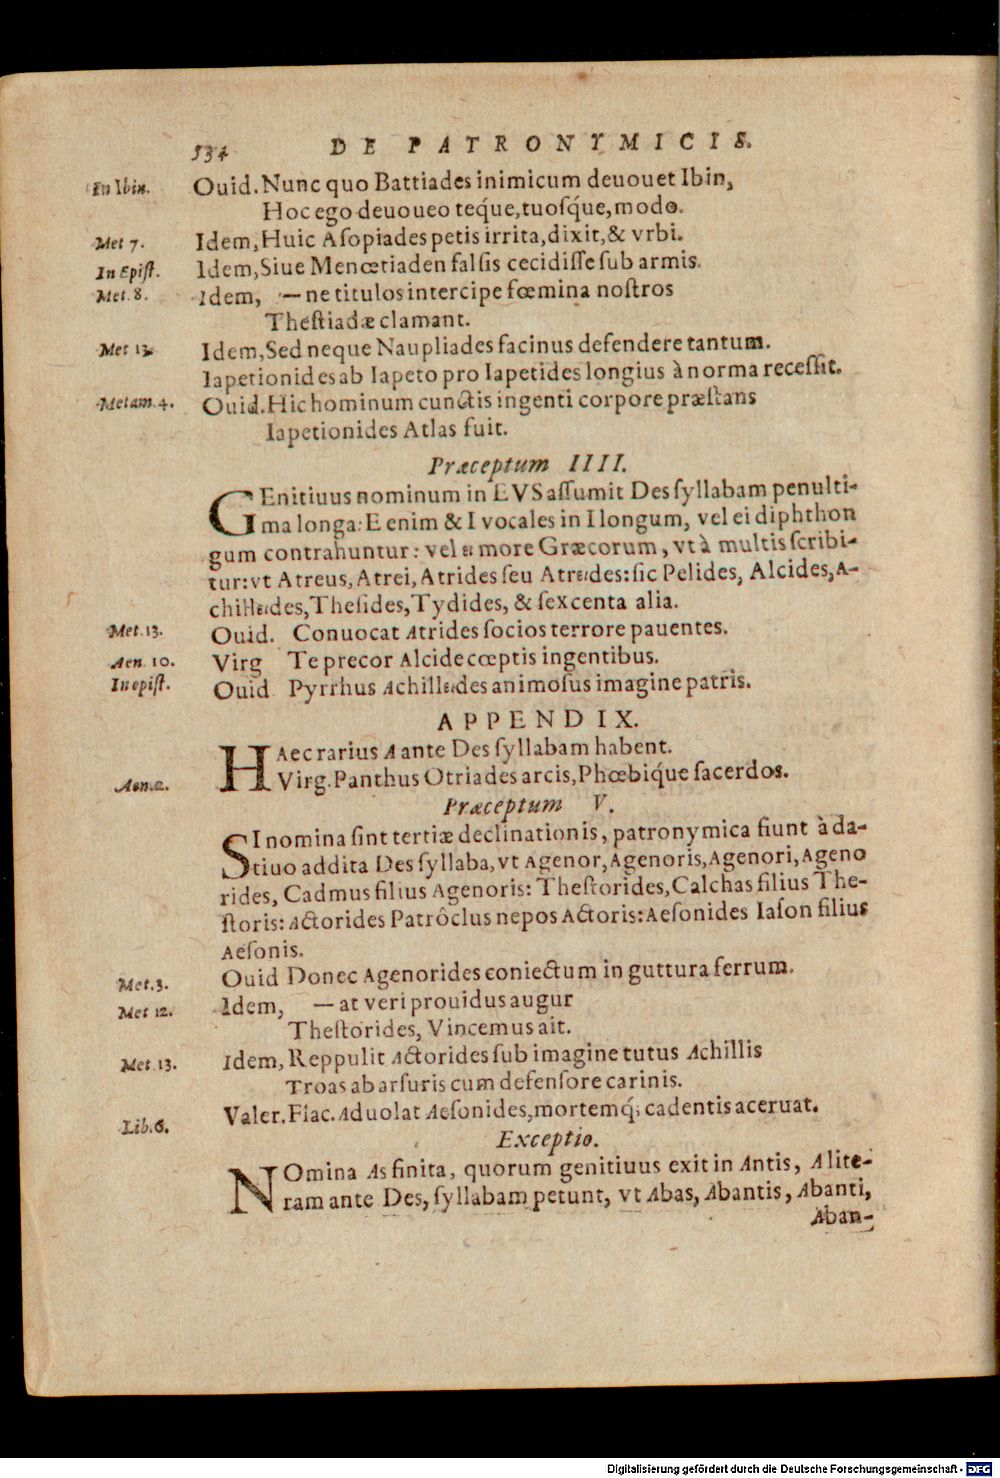 534 DE PATRONYMICIS.
In Ibin. Ouid. Nunc quo Battiades inimicum deuouet Ibin,
Hoc ego deuoueo teq́ue, tuosq́ue, modo.
Met 7. Idem, Huic Asopiades petis irrita, dixit, & vrbi.
In Epist. Idem, Siue Menœtiaden falsis cecidisse sub armis.
Met. 8. Idem, — ne titulos intercipe fœmina nostros
Thestiadæ clamant.
Met 13. Idem, Sed neque Naupliades facinus defendere tantum.
Iapetionides ab Iapeto pro Iapetides longius à norma recessit.
Metam. 4. Ouid. Hic hominum cunctis ingenti corpore præstans
Iapetionides Atlas fuit.
Præceptum IIII.
GEnitiuus nominum in EVS assumit Des syllabam penulti-
ma longa: E enim & I vocales in I longum, vel ei diphthon
gum contrahuntur: vel ει more Græcorum, vt à multis scribi-
tur: vt Atreus, Atrei, Atrides seu Atreιdes: sic Pelides, Alcides, A-
chilleιdes, Thesides, Tydides, & sexcenta alia.
Met. 13. Ouid. Conuocat Atrides socios terrore pauentes.
Aen. 10. Virg Te precor Alcide cœptis ingentibus.
In epist. Ouid Pyrrhus Achilleιdes animosus imagine patris.
APPENDIX.
HAec rarius A ante Des syllabam habent.
Aen. 2. Virg. Panthus Otriades arcis, Phœbiq́ue sacerdos.
Præceptum V.
SI nomina sint tertiæ declinationis, patronymica fiunt à da-
tiuo addita Des syllaba, vt Agenor, Agenoris, Agenori, Ageno
rides, Cadmus filius Agenoris: Thestorides, Calchas filius The-
storis: Actorides Patrôclus nepos Actoris: Aesonides Iason filius
Aesonis.
Met. 3. Ouid Donec Agenorides coniectum in guttura ferrum.
Met 12. Idem, — at veri prouidus augur
Thestorides, Vincemus ait.
Met. 13. Idem, Reppulit Actorides sub imagine tutus Achillis
Troas ab arsuris cum defensore carinis.
Lib. 6. Valer. Flac. Aduolat Aesonides, mortemq́; cadentis aceruat.
Exceptio.
NOmina As finita, quorum genitiuus exit in Antis, A lite-
ram ante Des, syllabam petunt, vt Abas, Abantis, Abanti,
Aban-
Digitalisierung gefördert durch die Deutsche Forschungsgemeinschaft - DFG